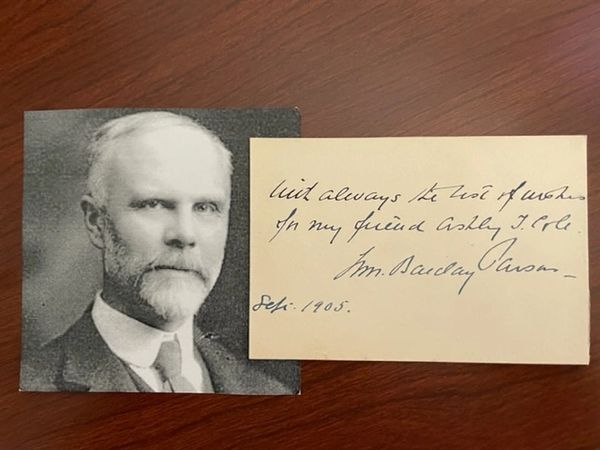 With always the best of wishes
for my friend Ashley T. Cole.
Wm. Barclay Parsons
Sept. 1905.